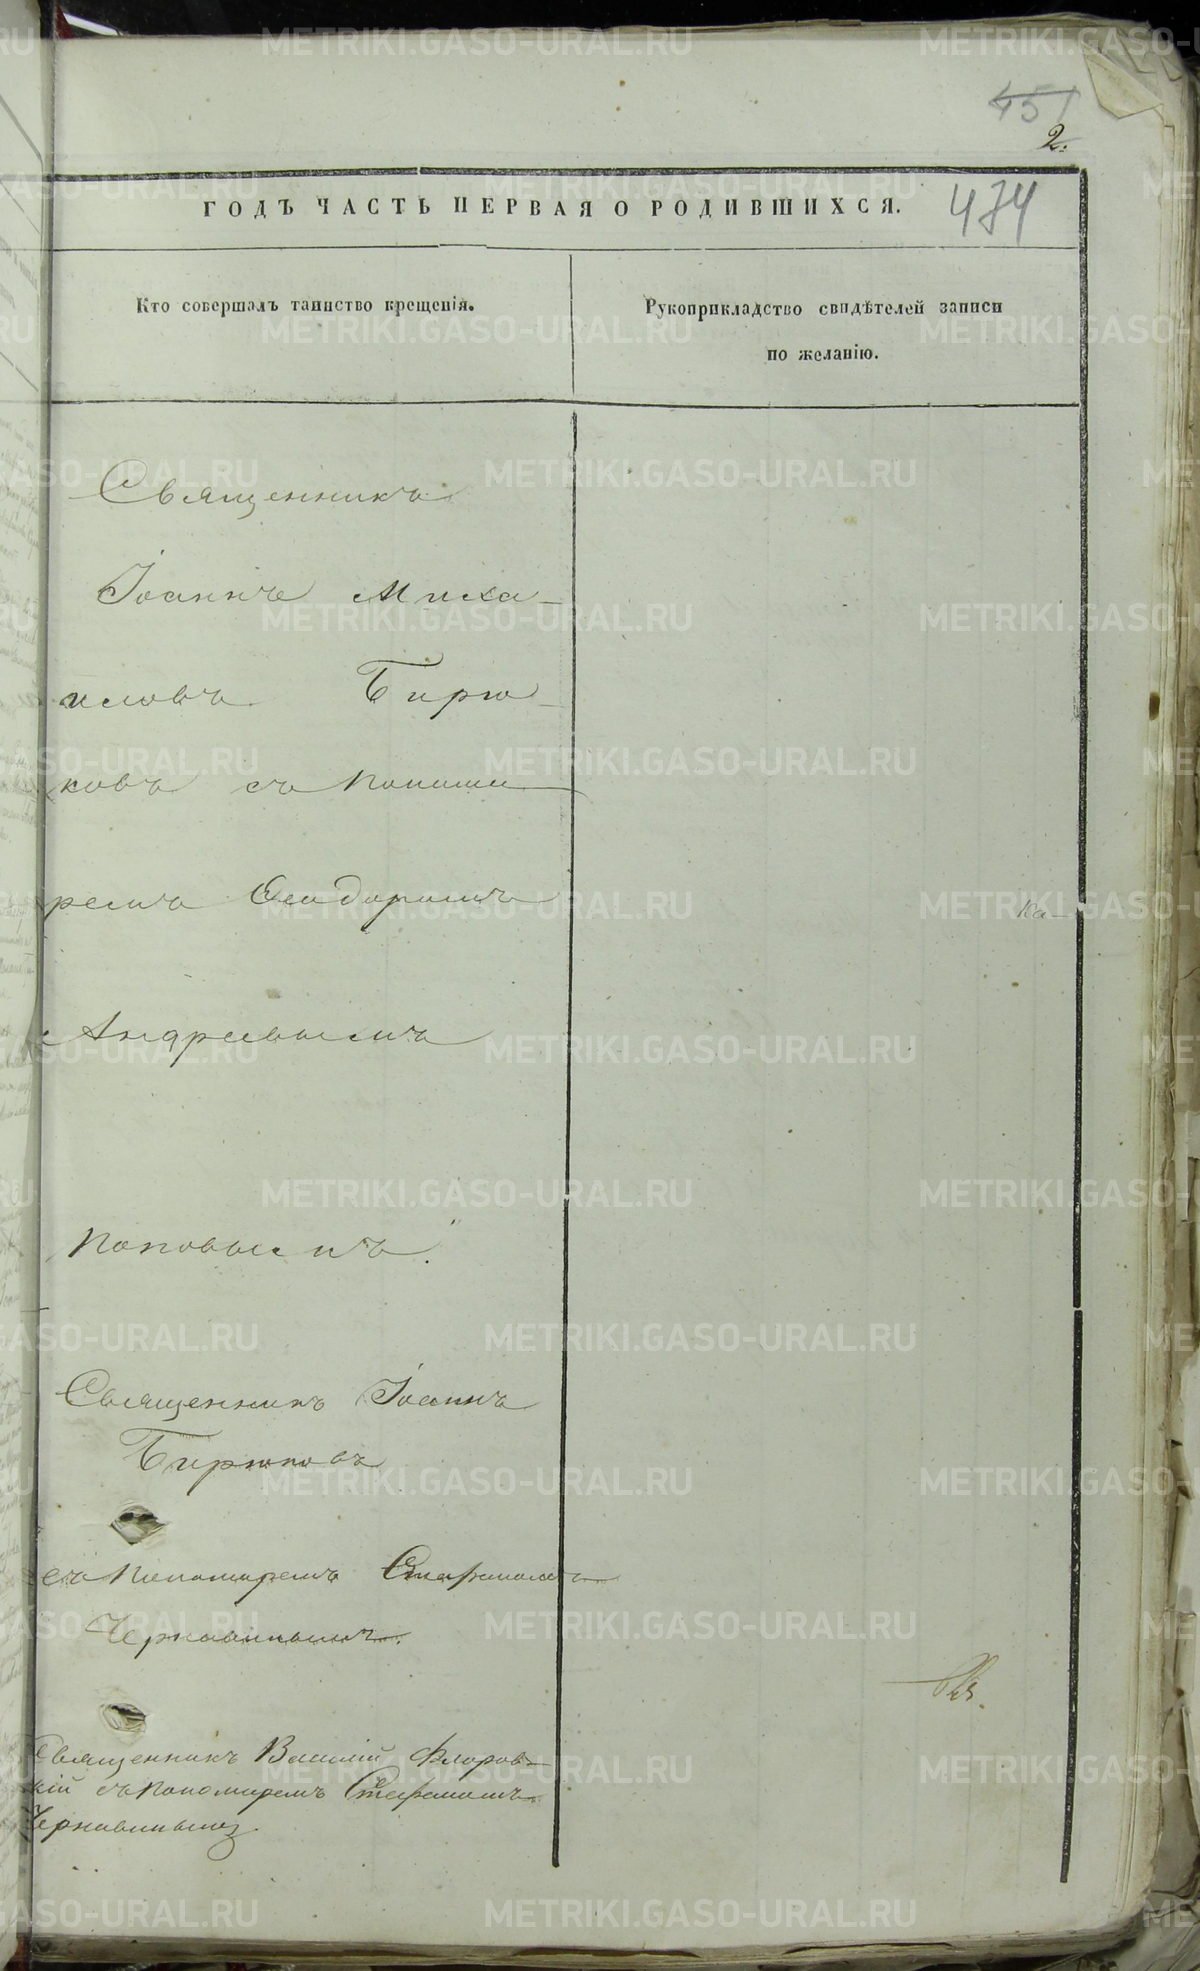 451
2.
ГОДЪ ЧАСТЬ ПЕРВАЯ О РОДИВШИХСЯ. 474
Кто совершалъ таинство крещенія.
Рукоприкладство свидѣтелей записи
по желанію.
Священникъ
Іоаннъ Миха-
иловъ Бирю-
ковъ съ Понома-
ремъ Ѳеодоромъ
Андреевымъ
Поповымъ.
Священникъ Іоаннъ
Бирюковъ
съ Пономаремъ Стефаномъ
Чернавинымъ.
Священникъ Василій Флоров-
скій съ Пономаремъ Стефаномъ
Чернавинымъ.
Ка-
METRIKI.GASO-URAL.RU